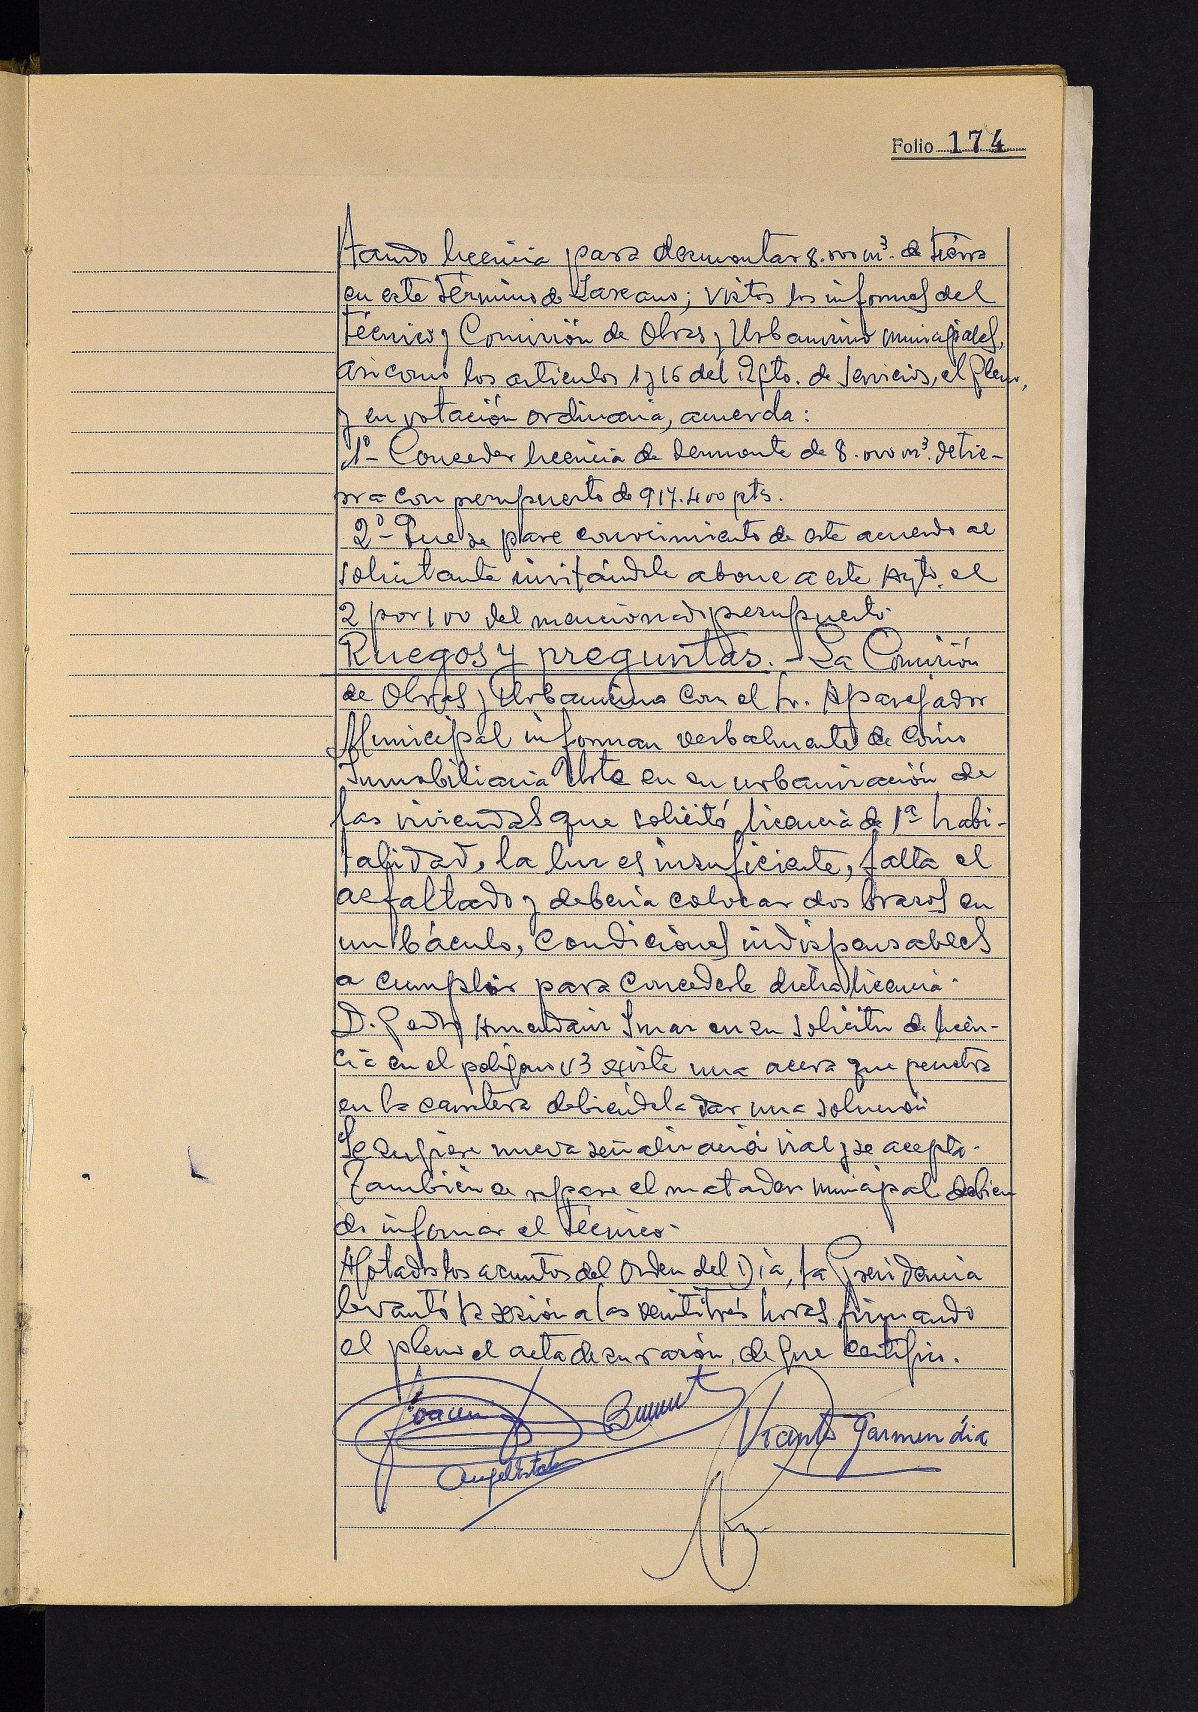 Folio 174
tando licencia para desmontar 8.000 m³. de tierra
en este Término de Lazcano; vistos los informes del
Técnico y Comisión de Obras y Urbanismo municipales,
asi como los articulos 1 y 16 del Rgto. de Servicios, el Pleno,
y en votación ordinaria, acuerda:
1º- Conceder licencia de desmonte de 8.000 m³. de tie-
rra con presupuesto de 917.400 pts.
2º- Que se pase conocimiento de este acuerdo al
solicitante invitándole abone a este Ayto. el
2 por 100 del mencionado presupuesto.
Ruegos y preguntas. - La Comisión
de Obras y Urbanismo con el Sr. Aparejador
Municipal informan verbalmente de cómo
Inmobiliaria en su urbanización de
las viviendas que solicitó licencia de 1ª habi-
talidad, la luz es insuficiente, falta el
asfaltado y deberia colocar dos brazos en
un báculo, condiciones indispensables
a cumplir para concederle dicha licencia.
D. Pedro Amendain en su solicitu de licen-
cia en el poligono existe una acera que penetra
en la carretera debiéndola dar una solución
Se sugiere nueva señalización vial y se acepta.
También se repase el matadero municipal debien
do informar el Técnico.
Agotados los asuntos del Orden del Dia, la Presidencia
levantó la sesión a las veintitrés horas firmando
el pleno el acta de su razón, de que certifico.
Vicente Garmendia